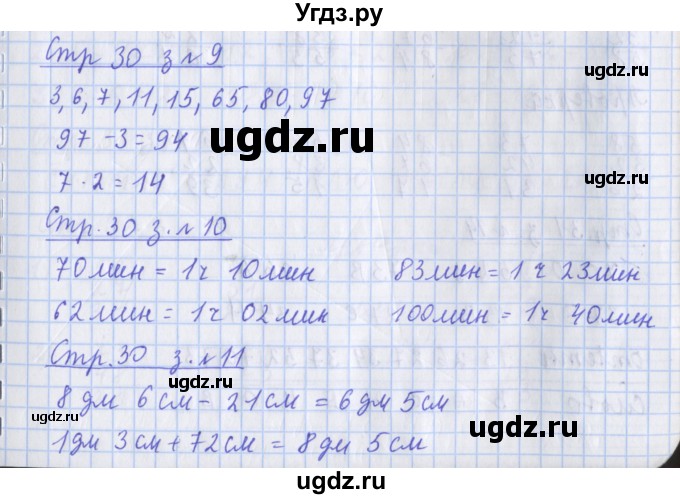 Угдз.ру
Стр 30 з № 9
ugdz.ru
3, 6, 7, 11, 15, 65, 80, 97
ugdz.ru
97 - 3 = 94
ugdz.ru
7 · 2 = 14
ugdz.ru
Стр. 30 з. № 10
70мин = 1ч 10мин 83мин = 1 ч 23мин
ugdz.ru
62мин = 1ч 02мин 100мин = 1ч 40мин
Стр. 30 з. № 11
ugdz.ru
8 дм 6см - 21см = 6дм 5см
ugdz.ru
1дм 3см + 72см = 8дм 5см
ugdz.ru